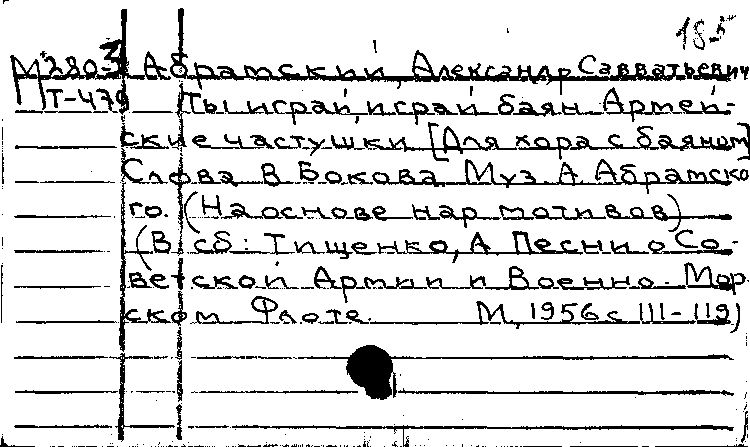 185
М280-3 Абратский, Александр Савватьевич
Т-479 Ты играй, играй баян. Армей-
ские частушки [Для хора с баяном]
Слова В Бокова Муз. А. Абратско-
го. (На основе нар мотивов)
(В сб: Тищенко, А Песни о Со-
ветской Армии и Военно-Мор-
ском Флоте. М, 1956 с 111-119)